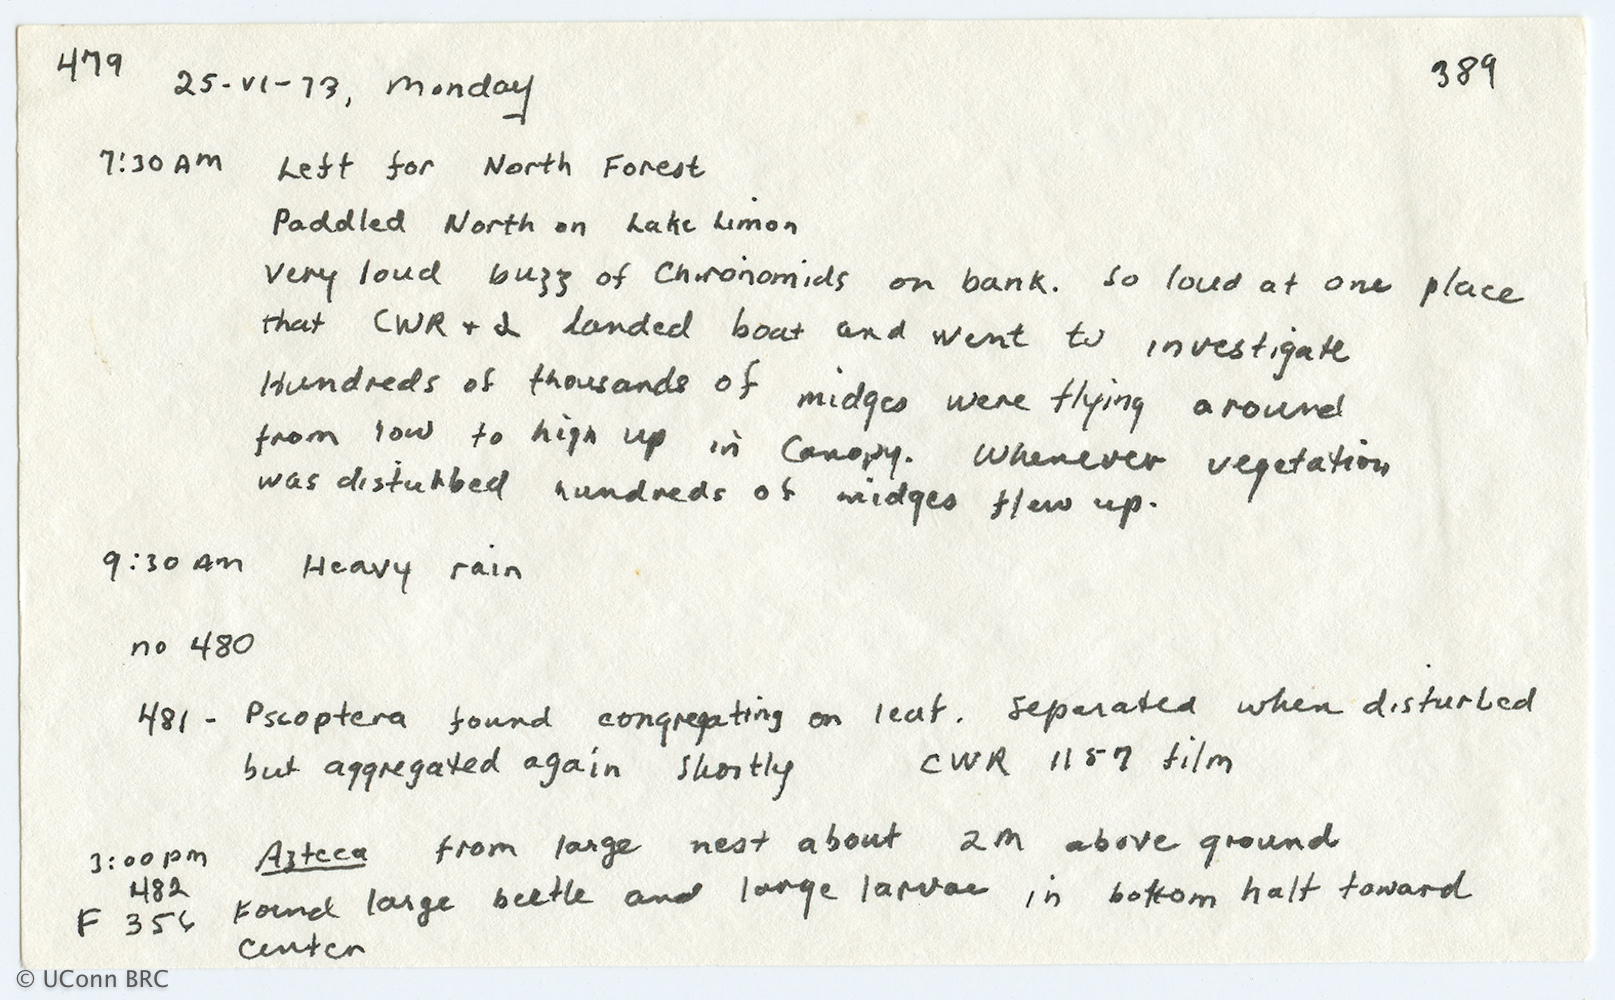 479
389
25-VI-73, Monday
7:30 AM Left for North Forest
Paddled North on Lake Limon
Very loud buzz of Chironomids on bank. So loud at one place
that CWR + I landed boat and went to investigate
Hundreds of thousands of midges were flying around
from low to high up in Canopy. Whenever vegetation
was disturbed hundreds of midges flew up.
9:30 AM Heavy rain
no 480
481 - Pscoptera found congregating on leaf. Separated when disturbed
but aggregated again shortly CWR 1157 film
3:00 pm Azteca from large nest about 2 M above ground
482
F 356 Found large beetle and large larvae in bottom half toward
center
© UConn BRC